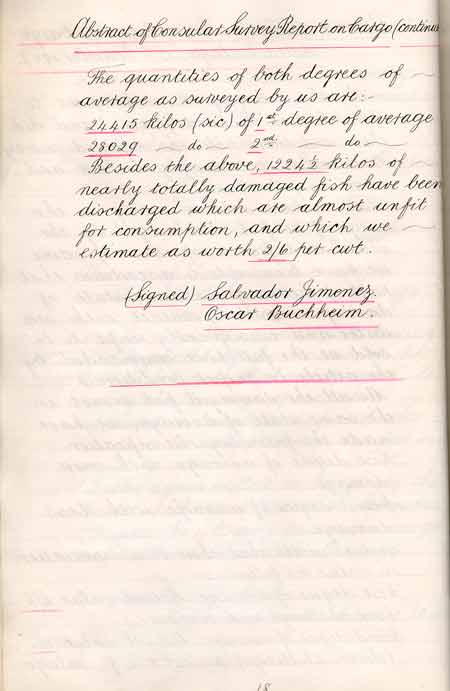 Abstract of Consular Survey Report on Cargo (continue
The quantities of both degrees of
average as surveyed by us are:-
24415 kilos (sic) of 1st degree of average
28029 — do — 2nd — do —
Besides the above, 1224½ kilos of
nearly totally damaged fish have been
discharged which are almost unfit
for consumption, and which we
estimate as worth 2/6 per cwt.
(Signed) Salvador Jimenez.
Oscar Buchheim.
18